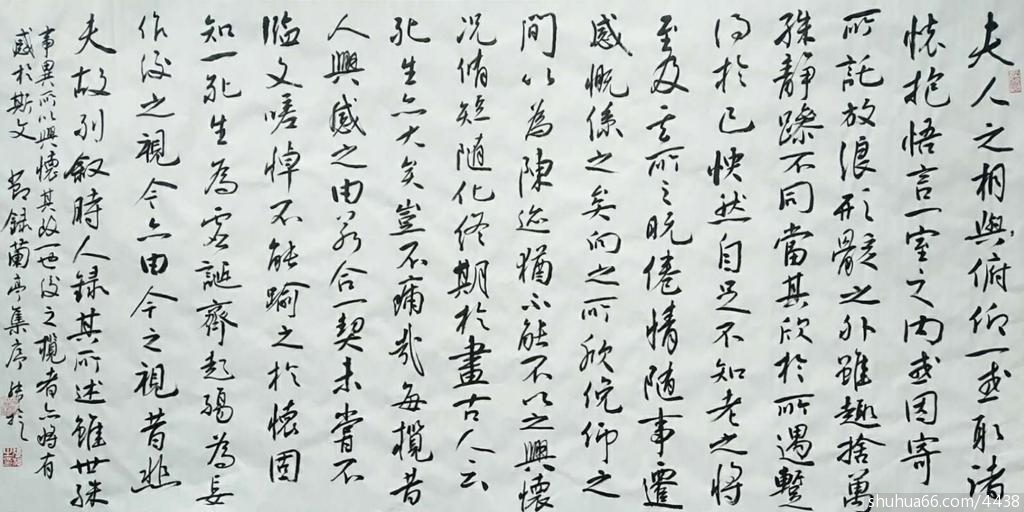 夫人之相與俯仰一世或取諸
懷抱悟言一室之內或因寄
所託放浪形骸之外雖趣捨萬
殊靜躁不同當其欣於所遇蹔
得於己怏然自足不知老之將
至及其所之既倦情隨事遷
感慨係之矣向之所欣俛仰之
間以為陳迹猶不能不以之興懷
況脩短隨化終期於盡古人云
死生亦大矣豈不痛哉每攬昔
人興感之由若合一契未嘗不
臨文嗟悼不能喻之於懷固
知一死生為虛誕齊彭殤為妄
作後之視今亦由今之視昔悲
夫故列敘時人錄其所述雖世殊
事異所以興懷其致一也後之攬者亦將有
感於斯文 節錄蘭亭集序
shuhua66.com/4438